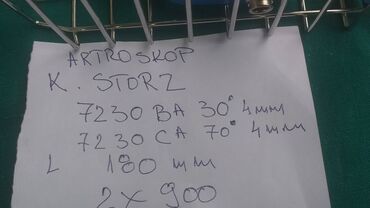 ARTROSKOP
K. STORZ
7230 BA 30° 4mm
7230 CA 70° 4mm
L 180 mm
2 x 900